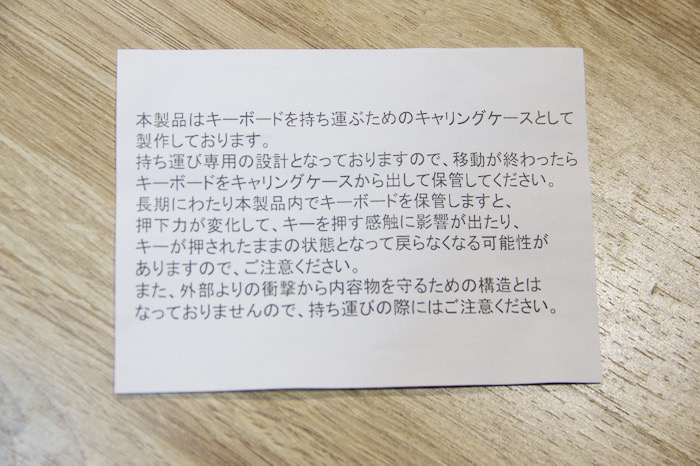 本製品はキーボードを持ち運ぶためのキャリングケースとして
製作しております。
持ち運び専用の設計となっておりますので、移動が終わったら
キーボードをキャリングケースから出して保管してください。
長期にわたり本製品内でキーボードを保管しますと、
押下力が変化して、キーを押す感触に影響が出たり、
キーが押されたままの状態となって戻らなくなる可能性が
ありますので、ご注意ください。
また、外部よりの衝撃から内容物を守るための構造とは
なっておりませんので、持ち運びの際にはご注意ください。